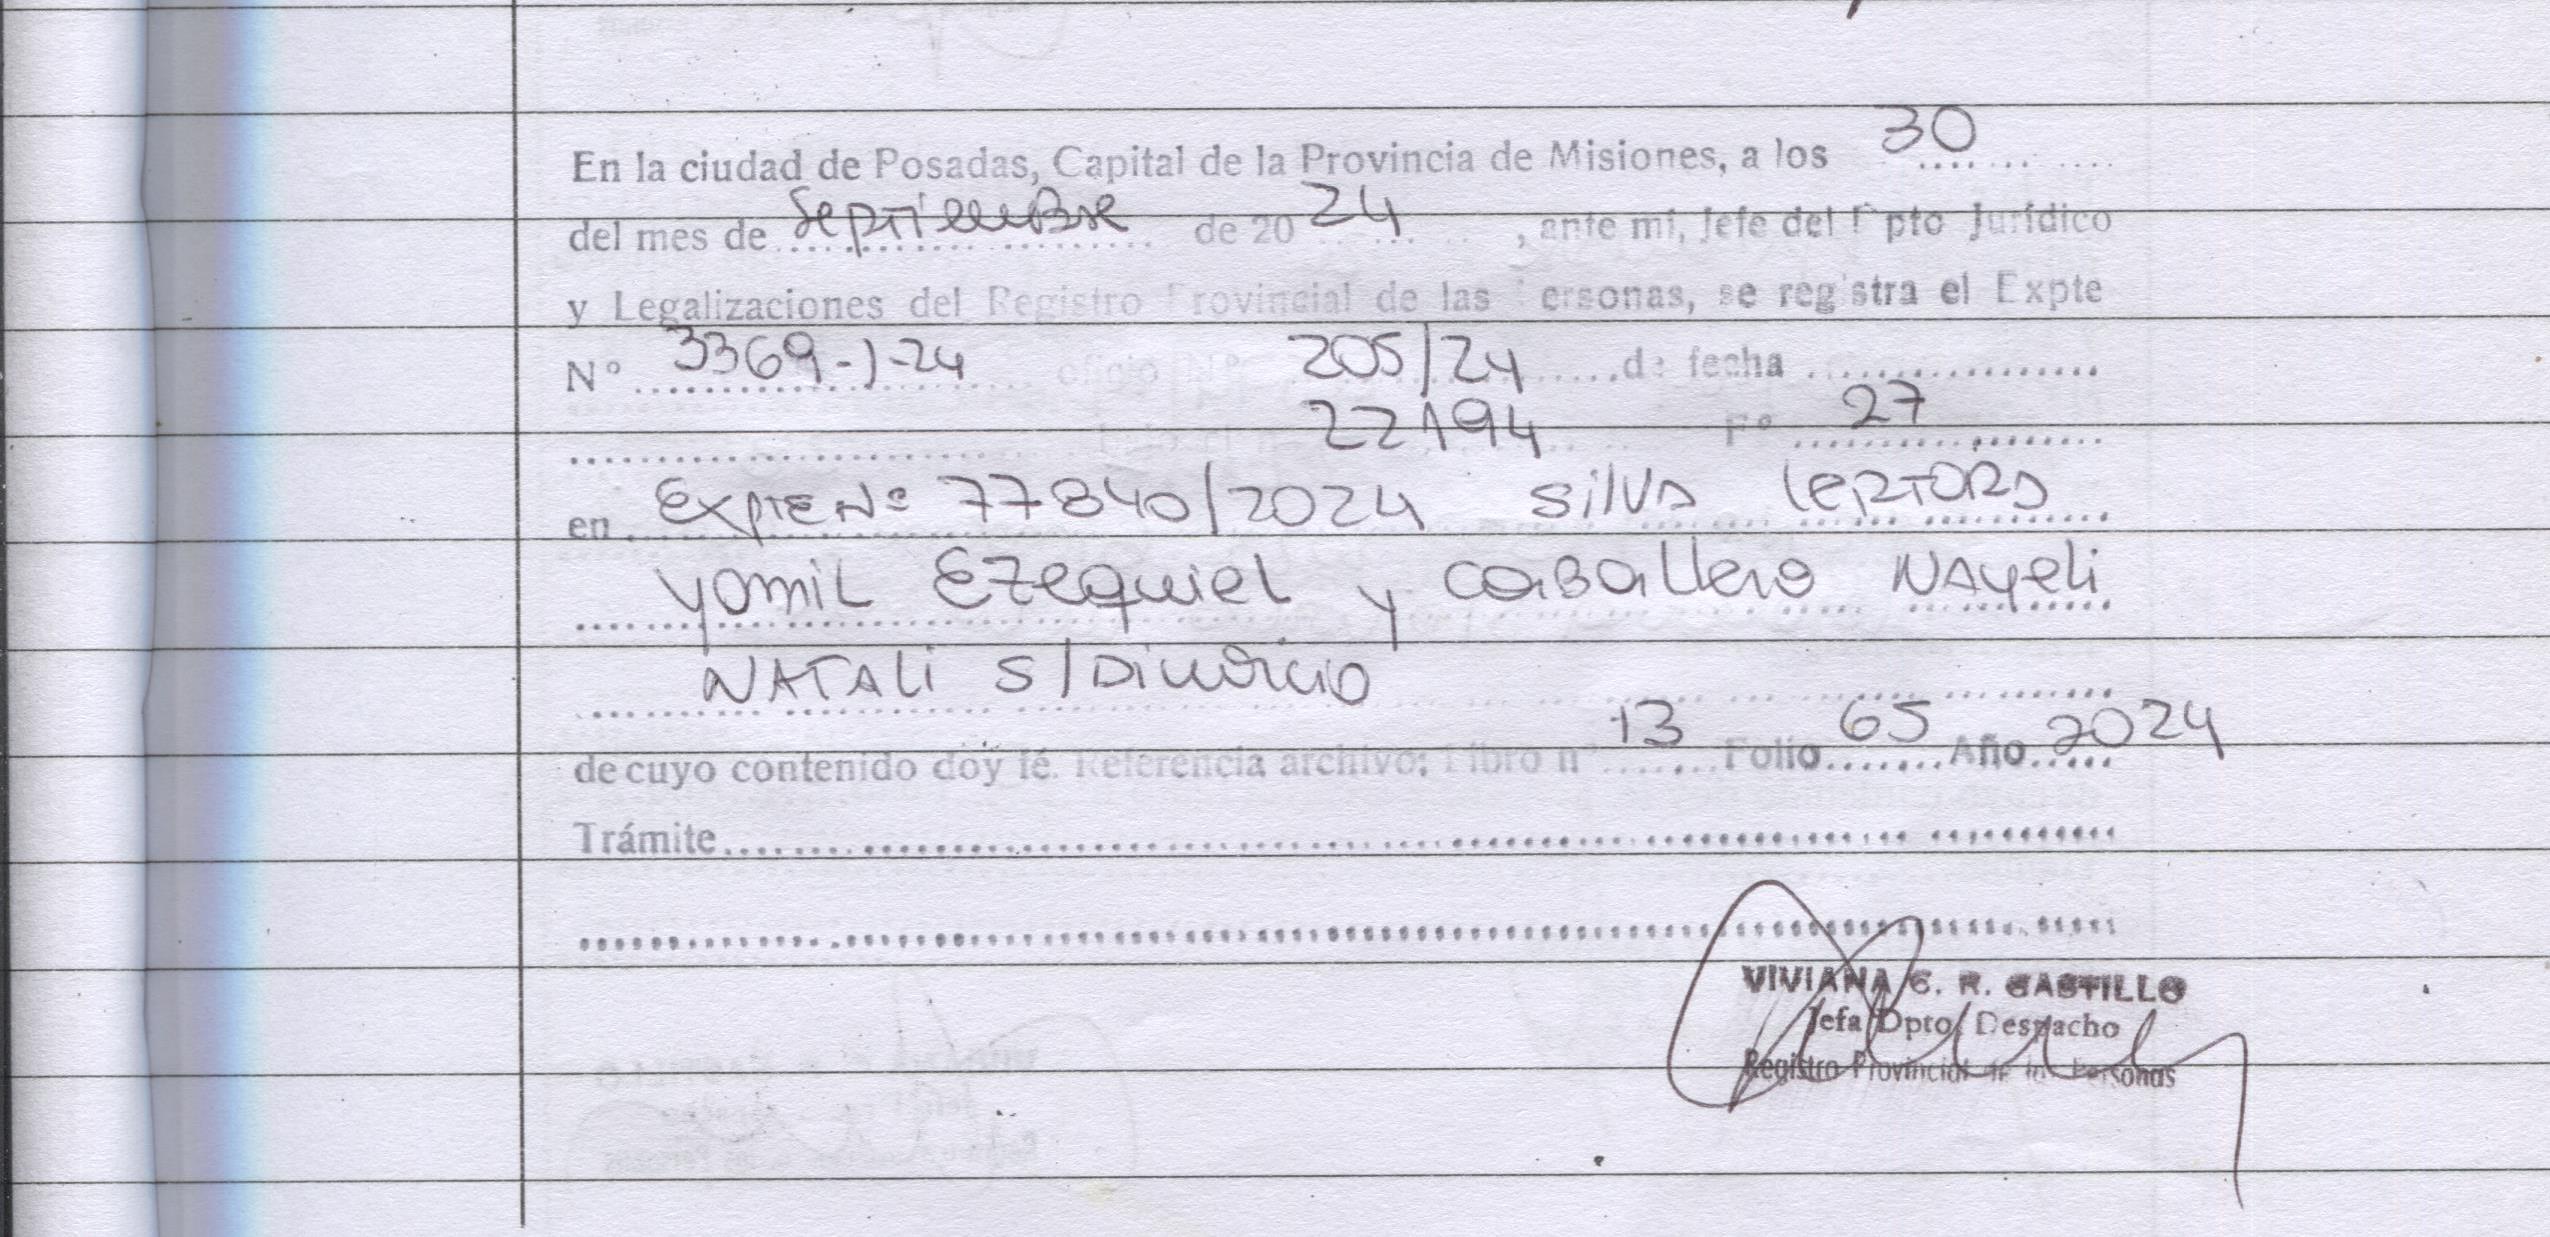 En la ciudad de Posadas, Capital de la Provincia de Misiones, a los 30
del mes de Septiembre de 20 24, ante mi, Jefe del Dpto Jurídico
y Legalizaciones del Registro Provincial de las Personas, se registra el Expte
N° 3369-J-24 oficio N° 205/24 de fecha
22194 F° 27
en Expte N° 77840/2024 Silva Lertora
Yamil Ezequiel y Caballero Nayeli
Natali S/Divorcio
de cuyo contenido doy fé. Referencia archivo: Libro n° 13 Folio 65 Año 2024
Trámite
VIVIANA C. R. CASTILLO
Jefa Dpto. Despacho
Registro Provincial de las Personas